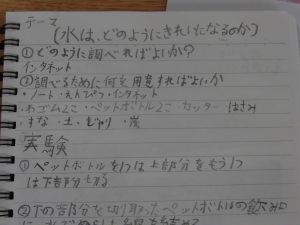 テーマ
(水は、どのようにきれいになるのか)
①どのように調べればよいか?
インタネット
②調べるために何を用意すればよいか
・ノート・えんぴつ・インタネット
・わゴム2こ・ペットボトル2こ・カッター・はさみ
・すな・土・じゃり・炭
実験
①ペットボトルを1つは上部分をもう1つ
は下部分を切る
②下の部分を切り取ったペットボトルの飲み口